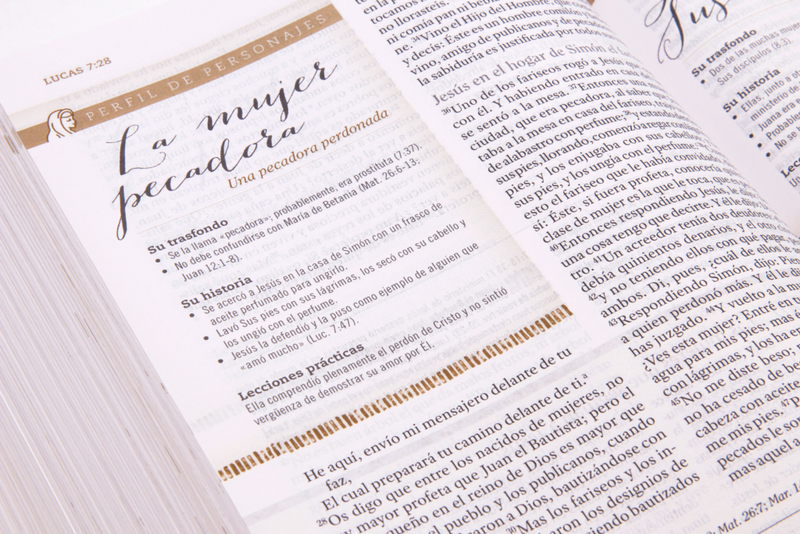 LUCAS 7:28
PERFIL DE PERSONAJES
La mujer
pecadora
Una pecadora perdonada
Su trasfondo
• Se la llama «pecadora»; probablemente, era prostituta (7:37).
• No debe confundirse con María de Betania (Mat. 26:6-13;
Juan 12:1-8).
Su historia
• Se acercó a Jesús en la casa de Simón con un frasco de
aceite perfumado para ungirlo.
• Lavó Sus pies con sus lágrimas, los secó con su cabello y
los ungió con el perfume.
• Jesús la defendió y la puso como ejemplo de alguien que
«amó mucho» (Luc. 7:47).
Lecciones prácticas
Ella comprendió plenamente el perdón de Cristo y no sintió
vergüenza de demostrar su amor por Él.
He aquí, envío mi mensajero delante de tu
faz,
El cual preparará tu camino delante de ti.a
28Os digo que entre los nacidos de mujeres, no
mayor profeta que Juan el Bautista; pero el
queño en el reino de Dios es mayor que
el pueblo y los publicanos, cuando
aron a Dios, bautizándose con
30Mas los fariseos y los in-
aron los designios de
iendo bautizados
tocamos
no llorasteis.
ni comía pan ni be
ne. 34Vino el Hijo del Hom
y decís: Este es un hombre comiló
vino, amigo de publicanos y de peca
la sabiduría es justificada por todos
Jesús en el hogar de Simón el
36Uno de los fariseos rogó a Jesús
con él. Y habiendo entrado en casa
se sentó a la mesa. 37Entonces una
ciudad, que era pecadora, al saber
taba a la mesa en casa del fariseo, tr
de alabastro con perfume; 38y estando
sus pies, llorando, comenzó a regar con
pies, y los enjugaba con sus cabell
sus pies, y los ungía con el perfume.
esto el fariseo que le había convidado
sí: Este, si fuera profeta, conocería
clase de mujer es la que le toca, que es
40Entonces respondiendo Jesús, le di
una cosa tengo que decirte. Y él le di
tro. 41Un acreedor tenía dos deudores
debía quinientos denarios, y el otro
42y no teniendo ellos con qué pagar
ambos. Di, pues, ¿cuál de ellos le
43Respondiendo Simón, dijo: Pien
a quien perdonó más. Y él le di
has juzgado. 44Y vuelto a la m
¿Ves esta mujer? Entré en t
agua para mis pies; mas és
con lágrimas, y los ha en
45No me diste beso; m
no ha cesado de be
cabeza con aceite
me mis pies. 47P
pecados le so
mas aquel a
Mat. 26:7; Mar. 1
Su trasfondo
• Dos de las muchas mujer
Sus discípulos (8:3).
Su historia
• Ellas, junto a o
• Juana era
• Proba
• No se